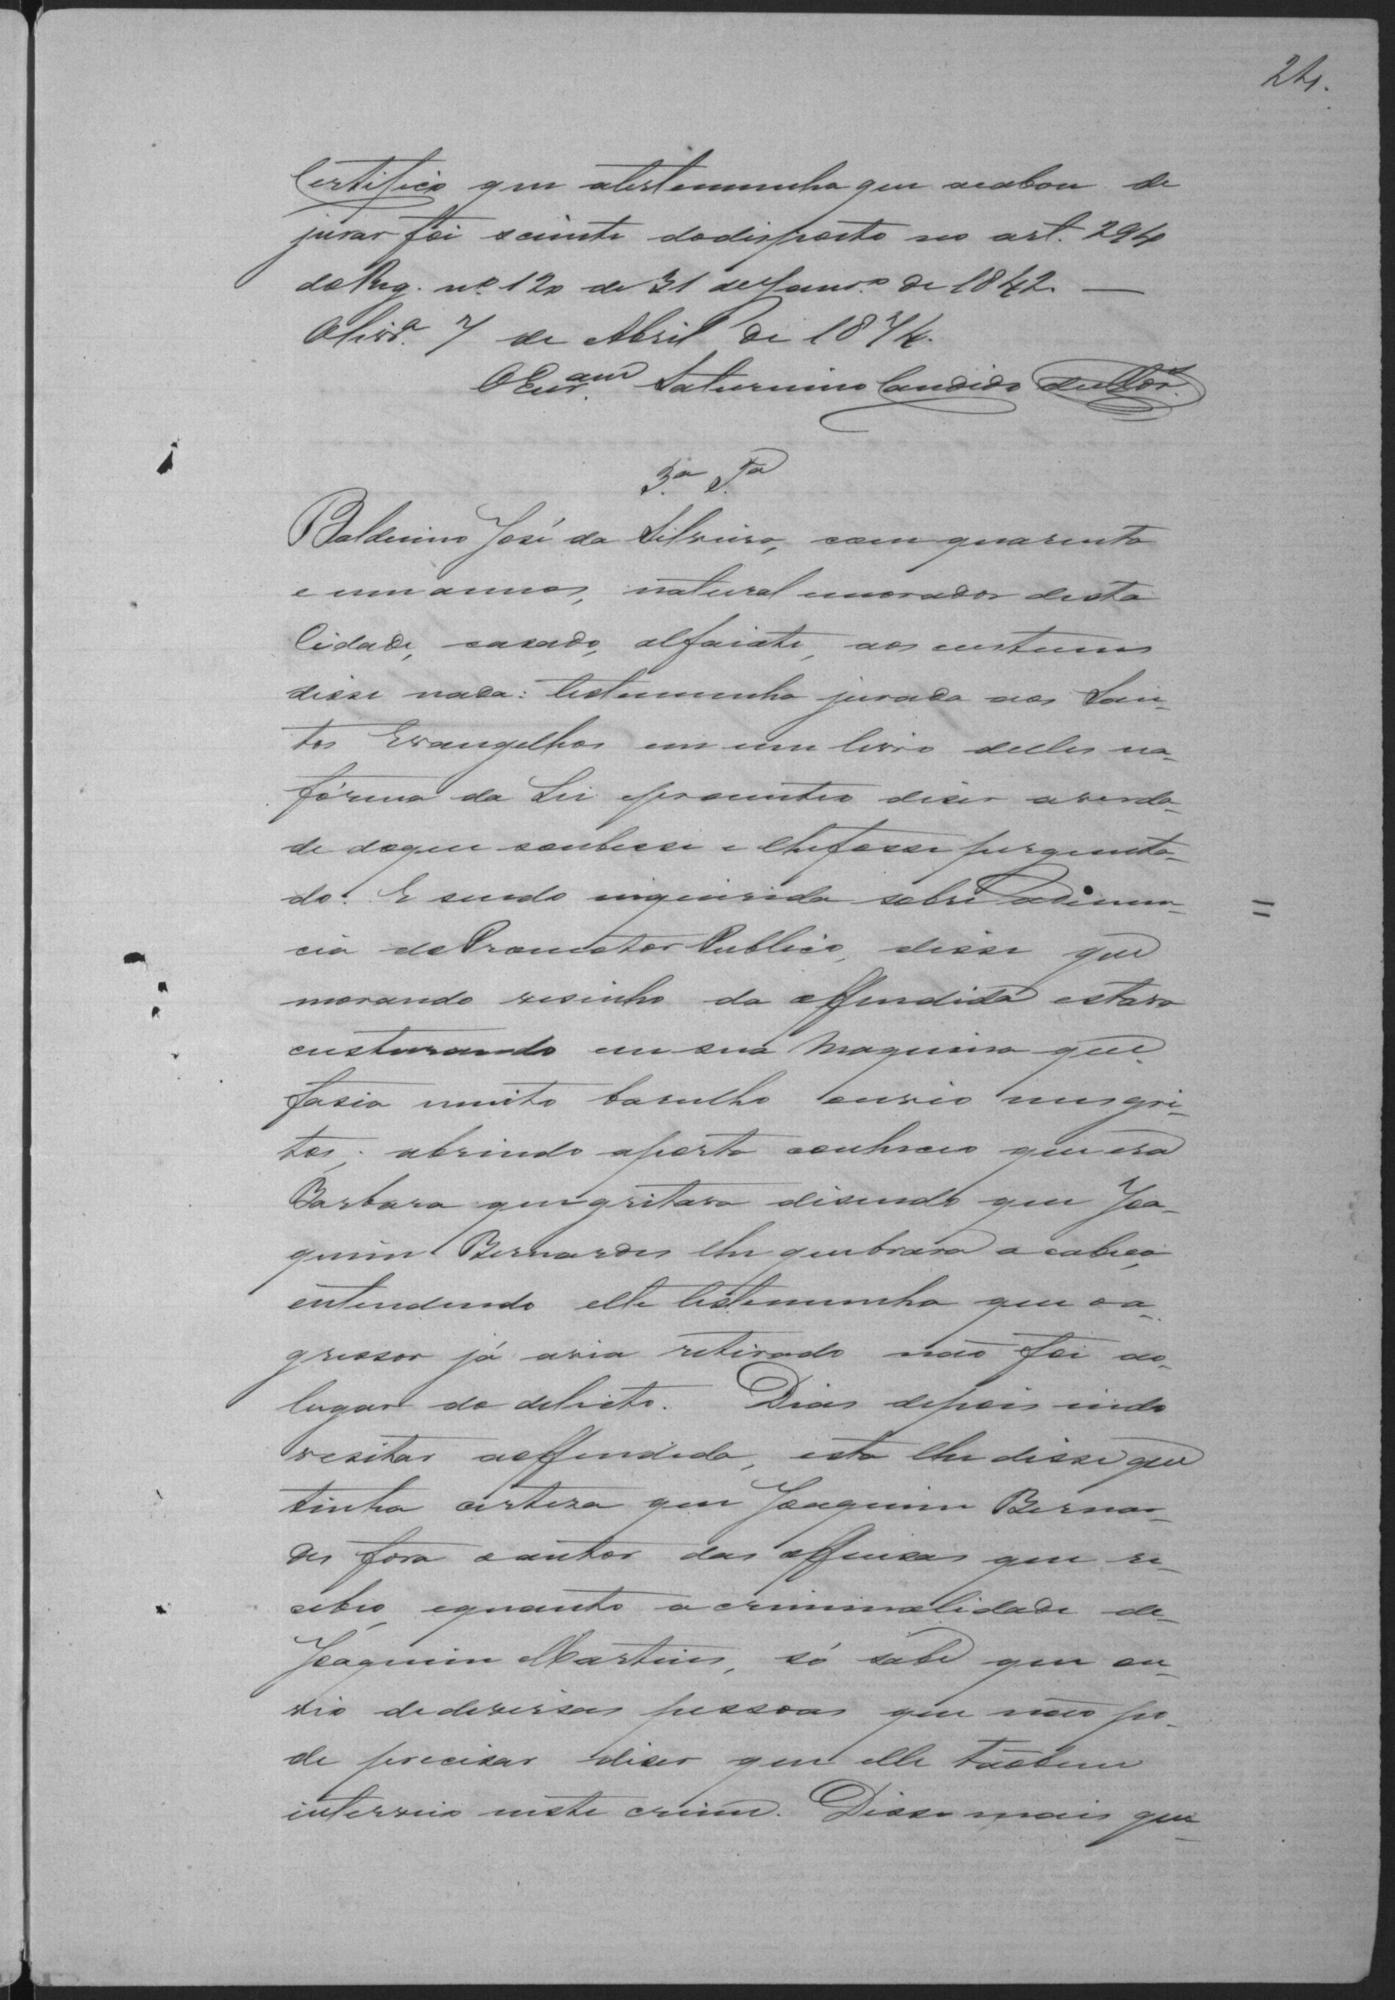 24.
Certifico que atestemunha que acabou de
jurar foi sciente dodisposto no art. 294
do Reg. nº 120 de 31 de Janrº de 1842. —
Olivrª 7 de Abril de 1874.
O Escram Saturnino Candido
3ª Tª
Balduino José da Silveira, com quarenta
e um annos, natural emorador desta
Cidade, casado, alfaiate, aos custumes
disse nada: testemunha jurada aos San-
tos Evangelhos em um livro delles na
fórma da Lei eprometteo diser averda-
de doque soubesse e lhefosse pergunta-
do. E sendo inquirida sobre adenun-
cia doPromotor Publico, disse que
morando vesinho da offendida estava
custurando em sua maquina que
fasia muito barulho ouvio uns gri-
tos, abrindo aporta conheceo que era
Barbara que gritava disendo que Joa-
quim Bernardes lhe quebrara a cabeça
entendendo elle testemunha que oa-
gressor já avia retirado não foi ao
lugar do delicto. Dias depois indo
vesitar aoffendida, esta lhe disse que
tinha certeza que Joaquim Bernar-
des fora oautor das offensas que re-
cebeo, equanto a criminalidade de
Joaquim Martins, só sabe que ou-
vio dedeversas pessoas que não po-
de precisar diser que elle tãobem
interveio neste crime. Disse mais que